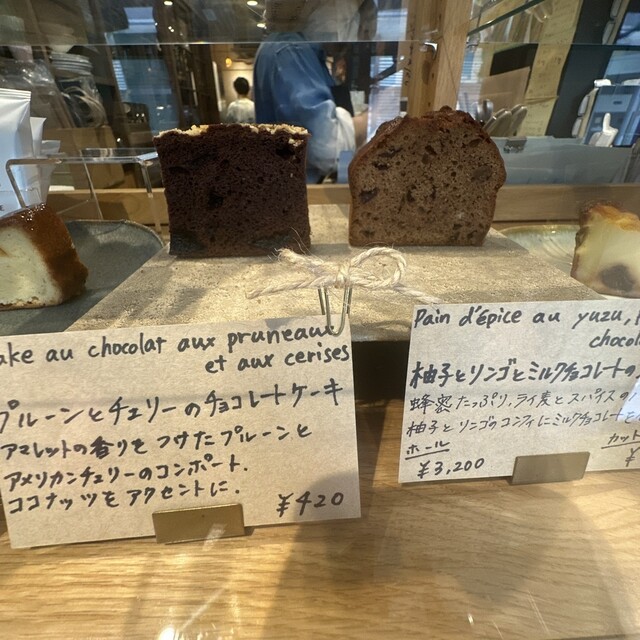 ake au chocolat aux pruneaux
et aux cerises
プルーンとチェリーのチョコレートケーキ
アマレットの香りをつけたプルーンと
アメリカンチェリーのコンポート.
ココナッツをアクセントに.
¥420
Pain d'épice au yuzu,
chocol
柚子とリンゴとミルクチョコレートの
蜂蜜たっぷり、ライ麦とスパイスの
柚子とリンゴのコンフィにミルクチョコレート
ホール
¥3,200
カット
¥